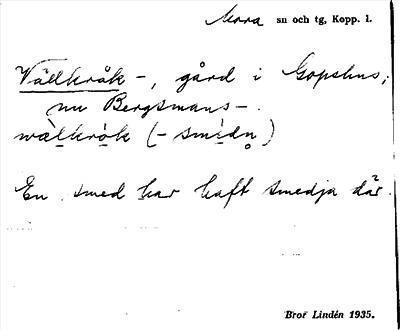 Mora sn och tg, Kopp. l.
Vällkråk-, gård i Gopshus;
nu Bergsmans-.
wälkròk (- smidn̥)
En smed har haft smedja där.
Brof Lindén 1935.